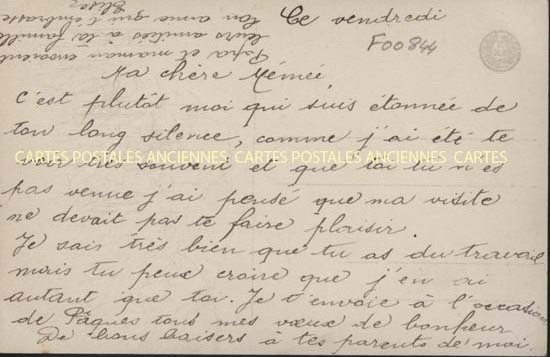 Ce vendredi
F00844
Ma chère Mémée
C'est plutôt moi qui suis étonnée de
ton long silence, comme j'ai été te
voir très souvent et que toi tu n'es
CARTES POSTALES ANCIENNES CARTES POSTALES ANCIENNES CARTES
pas venue j'ai pensé que ma visite
ne devait pas te faire plaisir.
Je sais très bien que tu as du travail
mais tu peux croire que j'en ai
autant que toi. Je t'envoie à l'occasion
de Pâques tous mes vœux de bonheur
De bons baisers a tes parents de moi.
Papa et maman envoient
leurs amitiés à ta famille
Ton amie qui t'embrasse